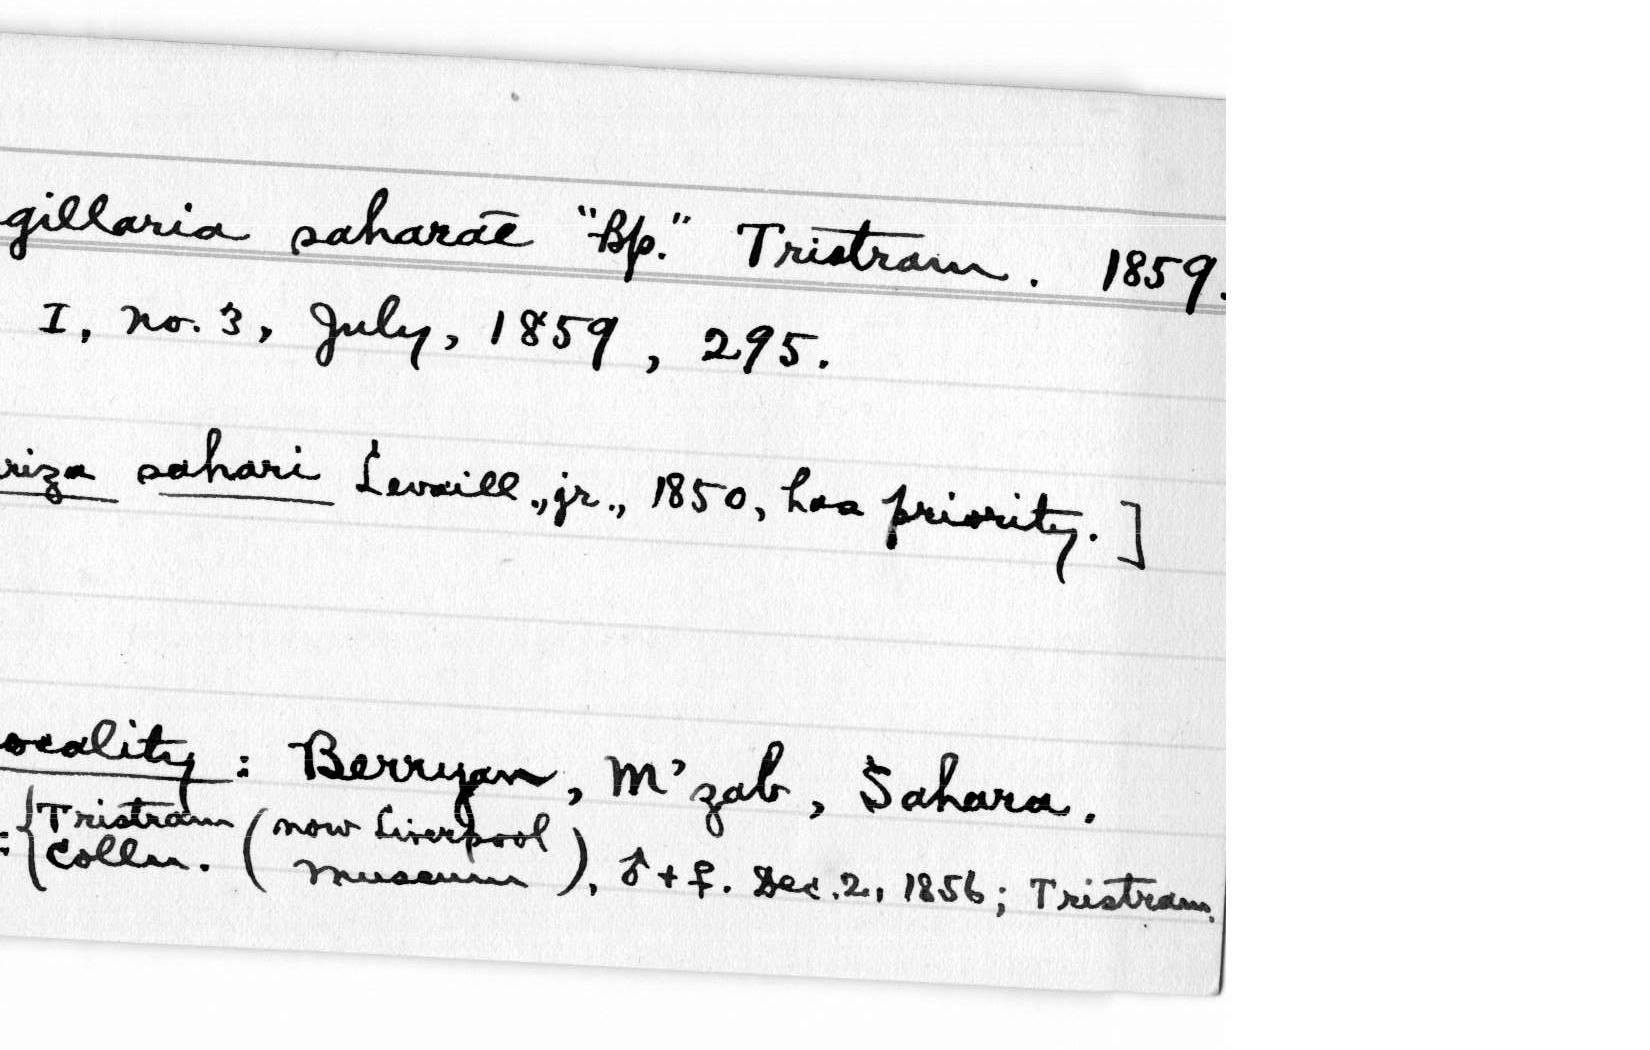 gillaria saharae "Bp." Tristram. 1859.
I, no. 3, July, 1859, 295.
riza sahari Levaill., jr., 1850, has priority.]
ocality: Berryan, M'zab, Sahara.
:{Tristram Colln. (now Liverpool Museum), ♂ + ♀. Dec. 2, 1856; Tristram.